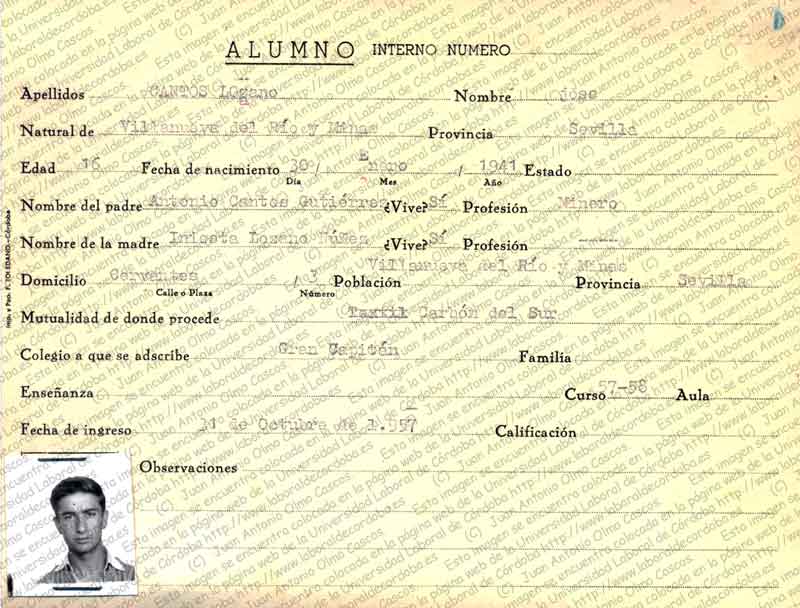 ALUMNO INTERNO NUMERO
Apellidos CANTOS Lozano Nombre Jose
Natural de Villanueva del Río y Minas Provincia Sevilla
Edad 16 Fecha de nacimiento 30 / Enero / 1941 Estado
Día Mes Año
Nombre del padre Antonio Cantos Gutiérrez ¿Vive? Sí Profesión Minero
Nombre de la madre Lozano Núñez ¿Vive? Sí Profesión ----
Domicilio Cervantes / 3 Población Villanueva del Río y Minas Provincia Sevilla
Calle o Plaza Número
Mutualidad de donde procede Carbón del Sur
Colegio a que se adscribe Gran Capitán Familia
Enseñanza Curso 57-58 Aula
Fecha de ingreso 11 de Octubre de 1.957 Calificación
Observaciones
Imp. y Pap. F. TOLEDANO.-Córdoba
(C) Juan Antonio Olmo Cascos
Esta imagen se encuentra colocada en la página web de la Universidad Laboral de Córdoba http://www.laboraldecordoba.es